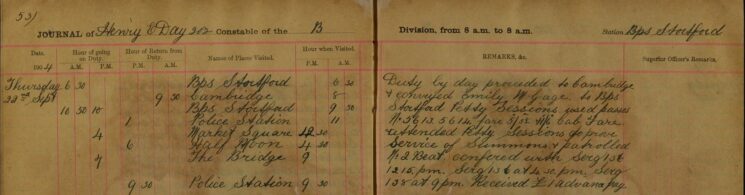 53)
JOURNAL of Henry E Day 202 Constable of the B Division, from 8 a.m. to 8 a.m. Station Bps Stortford
Date. Hour of going on Duty. Hour of Return from Duty. Names of Places Visited. Hour when Visited. REMARKS, &c. Superior Officer's Remarks.
1904 A.M. P.M. P.M. A.M. P.M. A.M.
Thursday 6 30 Bps Stortford 6 30 Duty by day proceeded to Cambridge
22nd Sept 9 30 Cambridge 8 & conveyed Emily M Gage to Bps
10 50 10 Bps Stortford 9 30 Stortford Petty Sessions used passes
1 Police Station 11 No 5613 5614 Fare 5/1 Cab Fare
4 Market Square 12 30 attended Petty Sessions to prove
6 Half Moon 4 30 Service of Summons & patrolled
7 The Bridge 9 No 2 Beat, confered with Sergt
12.15 pm. Sergt at 4.30 pm, Serg
9 30 Police Station 9 30 138 at 9 pm. Received £1 advance